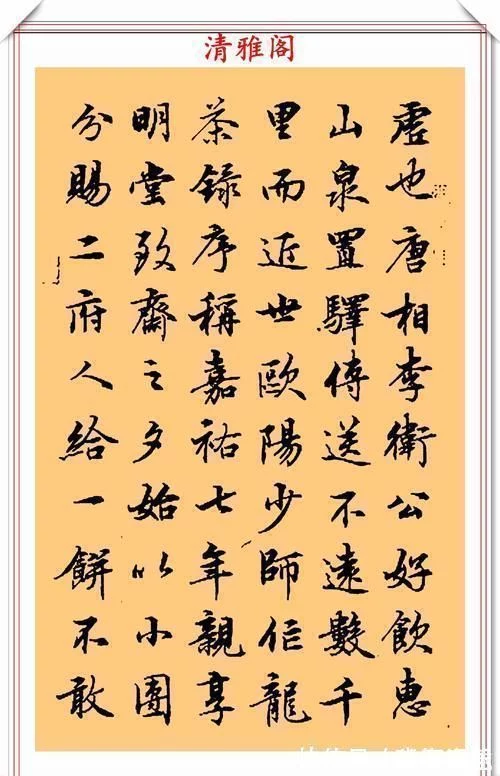 清雅阁
虛也唐相李衛公好飲惠
山泉置驛傳送不遠數千
里而近世歐陽少師作龍
茶錄序稱嘉祐七年親享
明堂致齋之夕始以小團
分賜二府人給一餅不敢